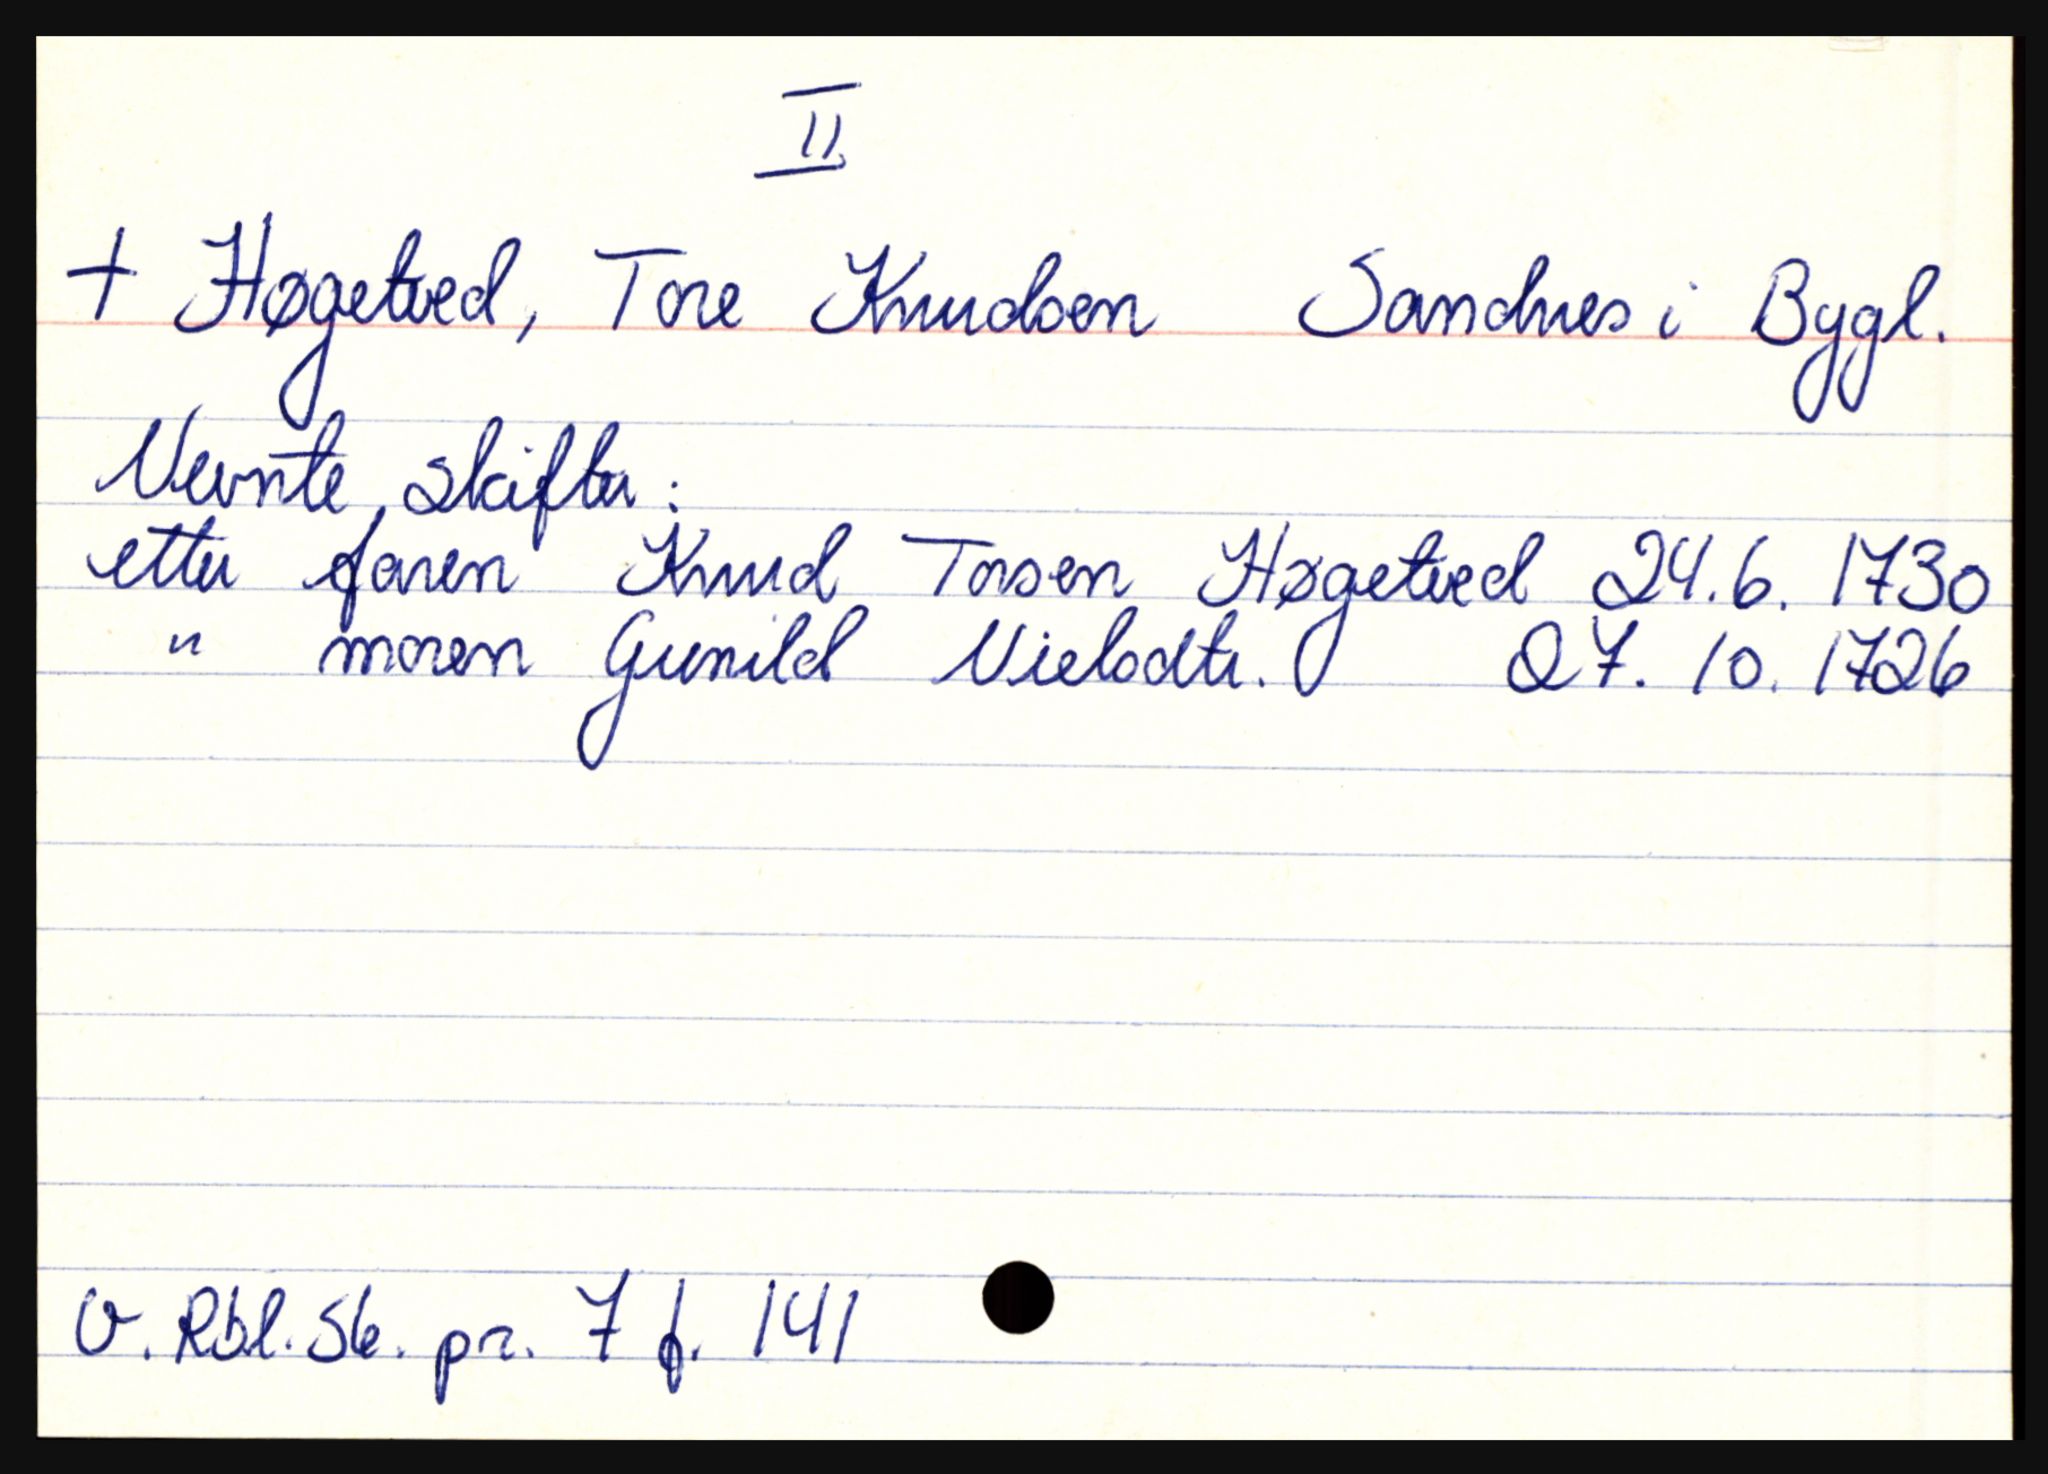 II
+ Høgetved, Tore Knudsen Sandnes i Bygl.
Nevnte, skifter:
etter faren Knud Torsen Høgetved 24.6. 1730
" moren Gunild Nielsdtr. 27. 10. 1726
V. Rbl. Sk. pr. 7 f. 141